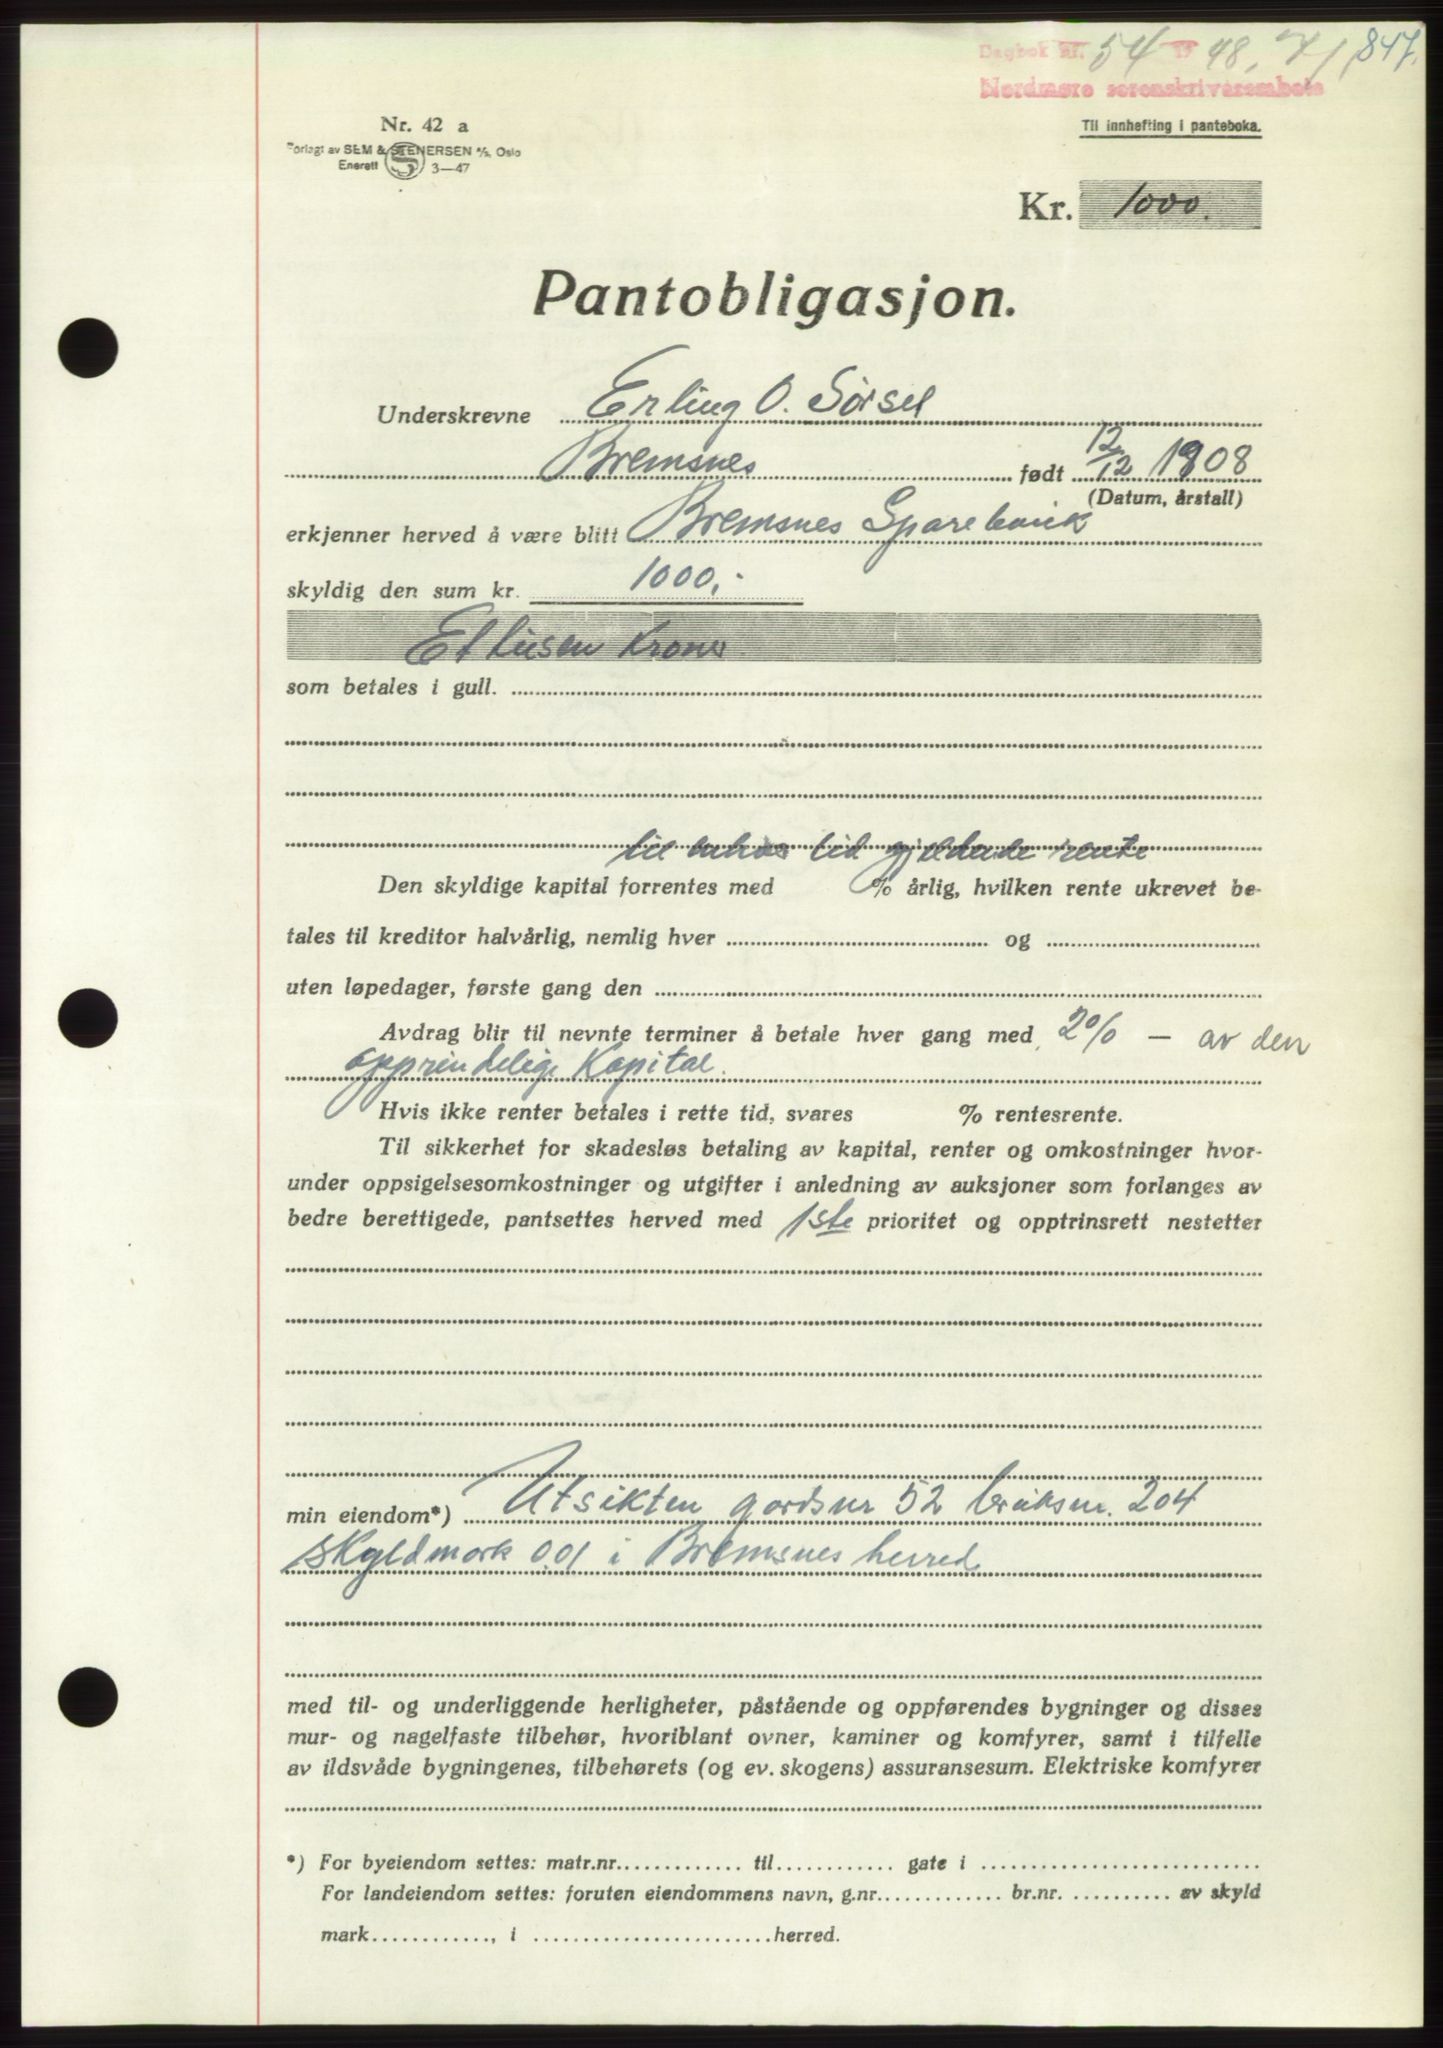 Dagbok nr. 54 19 48, 7/1 847.
Nordmøre sorenskriverembete
Nr. 42 a
Forlagt av SEM & STENERSEN A/S, Oslo
Enerett S 3—47
Til innhefting i panteboka.
Kr. 1000.
Pantobligasjon.
Underskrevne Erling O. Sørsel
Bremsnes født 12/12 1908
(Datum, årstall)
erkjenner herved å være blitt Bremsnes Sparebank
skyldig den sum kr. 1000,-
Ettusen kroner
som betales i gull.
til enhver tid gjeldende rente
Den skyldige kapital forrentes med % årlig, hvilken rente ukrevet be-
tales til kreditor halvårlig, nemlig hver og
uten løpedager, første gang den
Avdrag blir til nevnte terminer å betale hver gang med 2% — av den
opprindelige Kapital.
Hvis ikke renter betales i rette tid, svares % rentesrente.
Til sikkerhet for skadesløs betaling av kapital, renter og omkostninger hvor-
under oppsigelsesomkostninger og utgifter i anledning av auksjoner som forlanges av
bedre berettigede, pantsettes herved med 1ste prioritet og opptrinsrett nestetter
min eiendom*) Utsikten gårdsnr 52 bruksnr. 204
Skyldmark 0.01 i Bremsnes herred
med til- og underliggende herligheter, påstående og oppførendes bygninger og disses
mur- og nagelfaste tilbehør, hvoriblant ovner, kaminer og komfyrer, samt i tilfelle
av ildsvåde bygningenes, tilbehørets (og ev. skogens) assuransesum. Elektriske komfyrer
*) For byeiendom settes: matr.nr. til gate i
For landeiendom settes: foruten eiendommens navn, g.nr. br.nr. av skyld
mark , i herred.